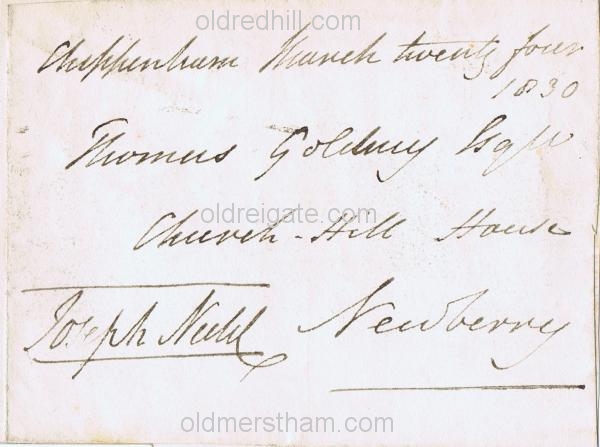 oldredhill.com
Chippenham March twenty four
1830
Thomas Goldney Esqr
oldreigate.com
Church-Hill House
Joseph Neeld Newberry
oldmerstham.com